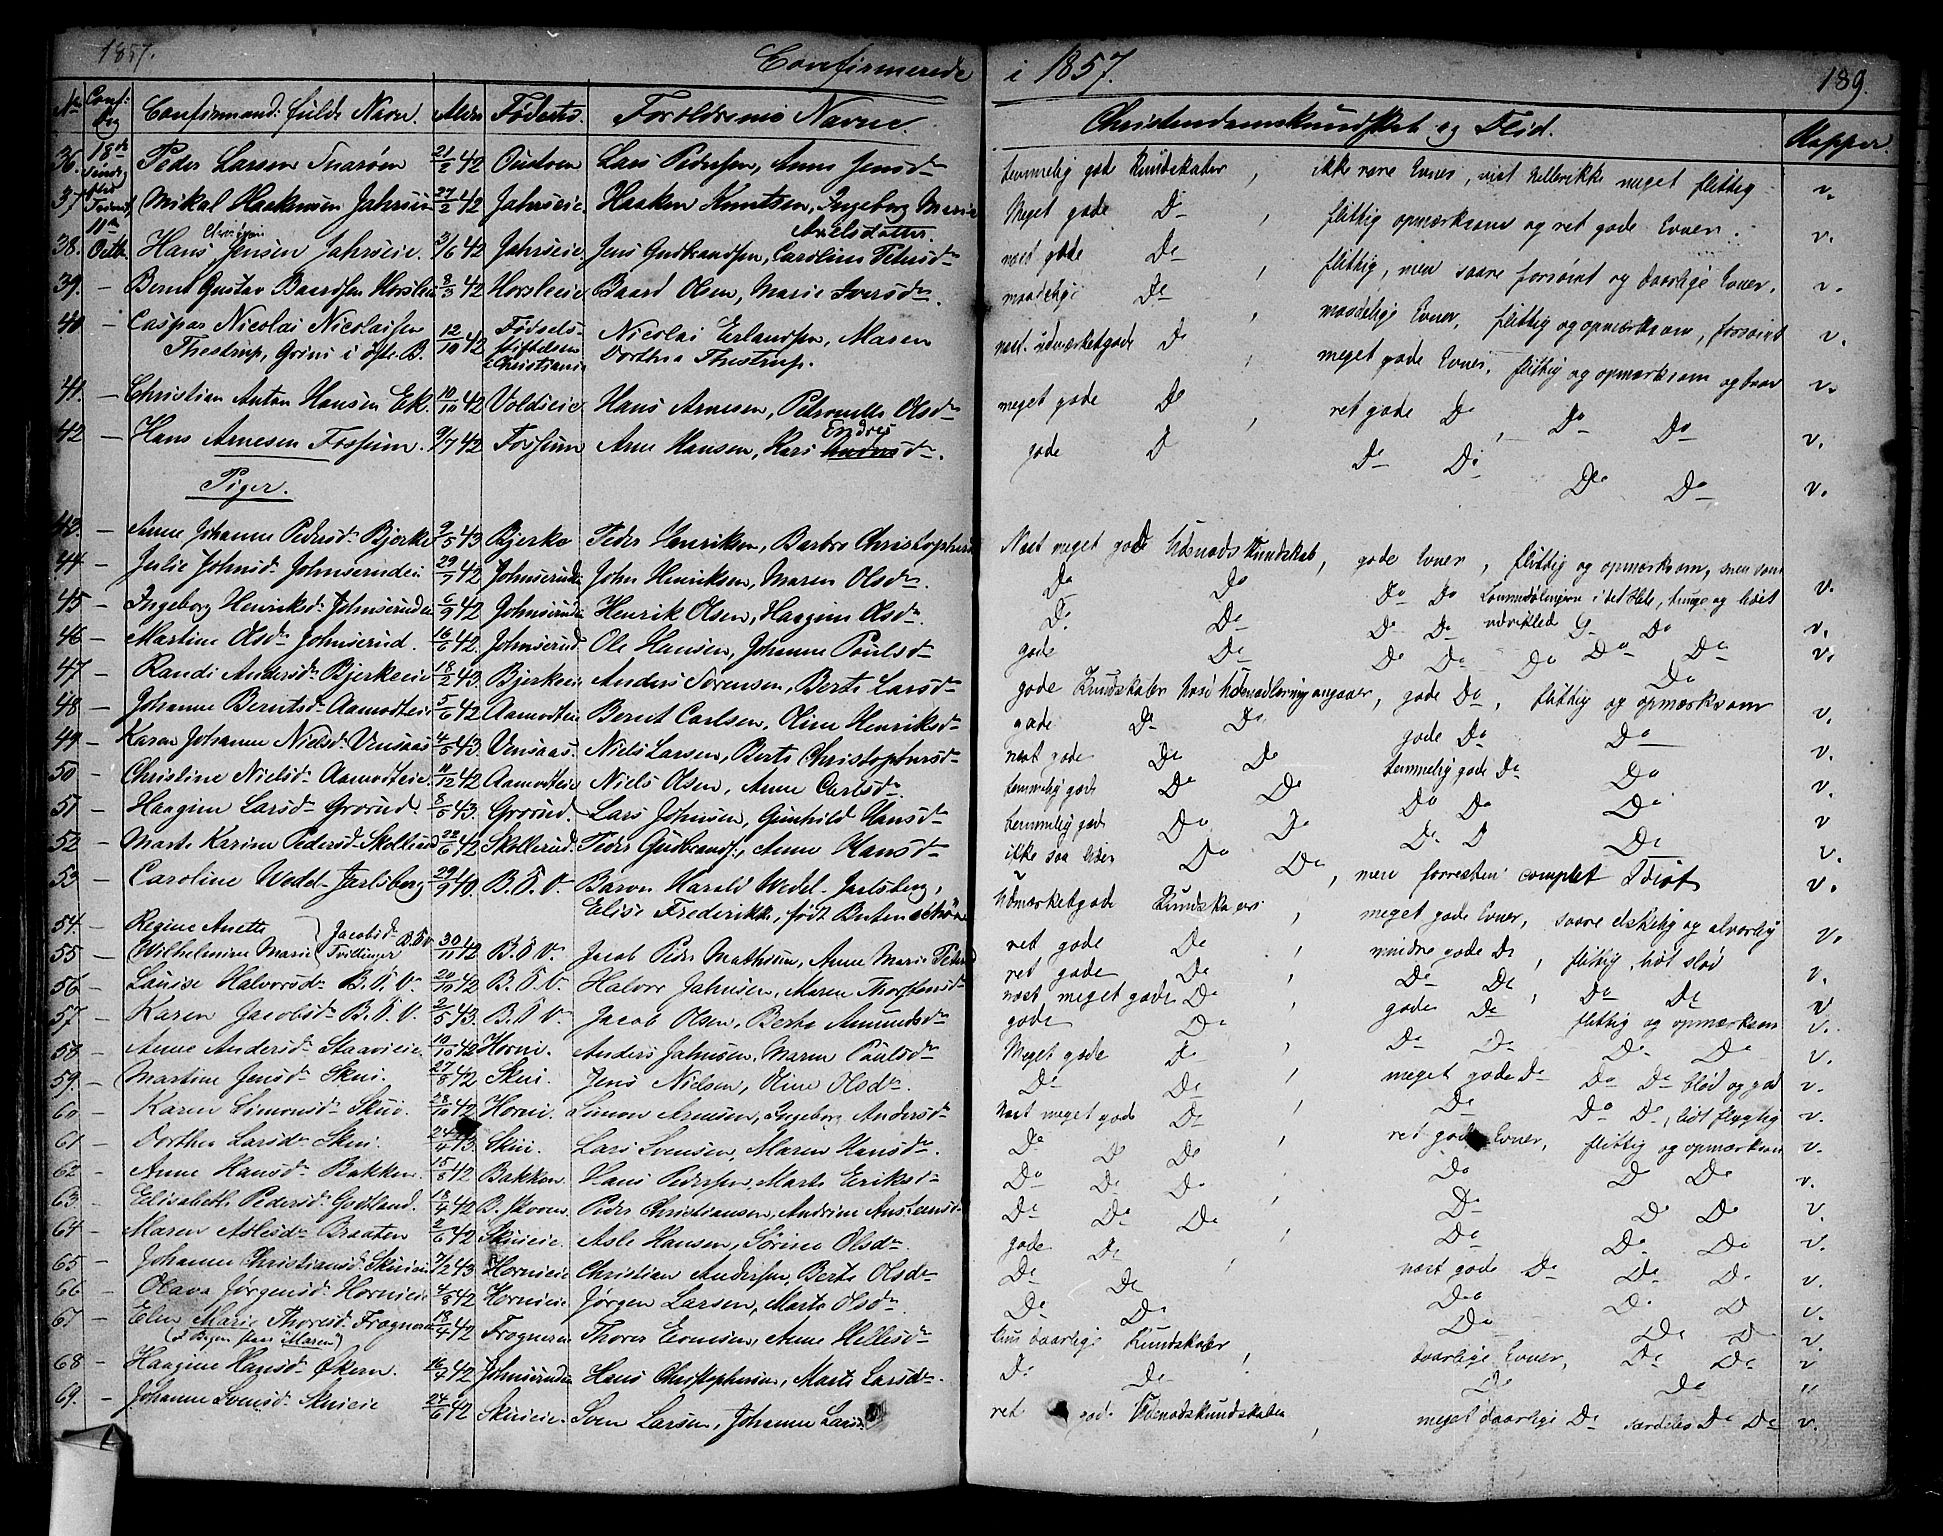 1857.
Confirmerede i 1857.
189.
No Conf: Dag Confirmand: fulde Navn. Alder Fødests. Forældrenes Navne. Christendomskundskab og Flid. Kopper.
36. 18de Peder Larsen Snarøen 21/2 42 Oustoen Lars Pedersen, Anne Jensdr temmelig god Kundskaber, ikke rare Evner, vist hellerikke meget flittig v.
37. Mikal Haakensen Jahrseie 27/2 42 Jahrseie. Haaken Knutsen, Ingeborg Marie Axelsdatter. Meget gode Do, flittig opmærksom og ret gode Evner. v.
38. Octb. Hans Jensen Jahrseie 3/6 42 Jahrseie Jens Gudbrandsen, Caroline Petersdr næst gode Do flittig, men saare forsømt og daarlige Evner. v.
39. – Bernt Gustav Baardsen Horsleie 2/3 42 Horsleeie Baard Olsen, Marie Iversdr. maadelige Do maadelige Evner, flittig og opmærksom, forsømt v.
40. – Caspar Nicolai Nicolaisen 12/10 42 Fødsels- Nicolai Erlandsen, Maren næst udmærketgode Do meget gode Evner, flittig og opmærksom og brav v.
Thestrup, Grini i østr. B. stiftelsen Dorthea Thestrup.
Christiania
41. – Christian Anton Hansen Ek. 10/10 42 Voldseie. Hans Arnesen, Petronelle Olsdr meget gode Do, ret gode Do, Do Do v.
42 – Hans Arnesen Fossum. 9/7 42 Fossum Arne Hansen, Kari Endres Andersdr. gode D Do Do Do Do v.
Piger.
43. – Anne Johanne Pedersdr Bjerke 9/5 43 Bjerke Peder Henriksen, Barbro Christophersd Næst meget gode Udenads Kundskab, gode Evner, flittig og opmærksom, men som
44. – Julie Johnsdr Johnserudei 29/7 42 Johnserudei John Henriksen, Maren Olsdr. Do Do Do Do i det Hele, tunge og lidet v.
45 – Ingeborg Henriksdr Johnseruden 6/9 42 Johnserudei Henrik Olsen, Haagine Olsdr. Do Do Do Do udviklet Do v.
46 – Martine Olsdr Johnserud. 16/6 42 Johnserud. Ole Hansen, Johanne Poulsdr gode Do Do Do Do Do Do v.
47 – Randi Andersdr Bjerkeeie 18/2 43. Bjerkeie Anders Sørensen, Berte Larsdr gode Kundskaber hvad Udenadlæring angaaer, gode Do, flittig og opmærksom
48 – Johanne Berntsdr Aamodteie 5/6 42 Aamodteie Bernt Carlsen, Oline Henriksdr gode Do Do gode Do Do v.
49 – Karen Johanne Nielsdr Vensaas 4/5 43. Vensaas Niels Larsen, Berte Christophersdr næst gode Do Do temmelig gode Do Do v.
50 – Christine Nielsdr Aamodteie. 11/12 42 Aamodteie Niels Olsen, Anne Carlsdr. temmelig gode Do Do Do Do Do v.
51 – Haagine Larsdr Grorud. 8/5 43. Grorud. Lars Johnsen, Gunhild Hansdr temmelig gode Do Do Do D Do v
52 – Marte Karine Pedersdr Skollerud 22/6 42 Skollerud. Peder Gudbrands:, Anne Hansdr ikke saa Do Do, men forresten complet Idiot v.
53 – Caroline Wedel-Jarlsberg 29/9 40. B. S. V. Baron Harald Wedel-Jarlsberg, Udmærketgode Kundskaber, meget gode Evner, saare elskelig og alvorlig v.
Elise Frederikke, født
54. – Regine Anette Jacobsdr B. S. V. ret gode Do, mindre gode Do, flittig, lidt sløv v.
55 – Wilhelmine Marie Tvillinger 30/11 42 B. S. V. Jacob Peder Mathisen, Anne Marie Peders ret gode Do, Do Do, Do Do v.
56 – Louise Halvorsdr B. S. V. 20/11 42 B. S. V. Halvor Jahnsen, Maren Thorstensdr næst meget gode Do, gode Do flittig og opmærksom v.
57 – Karen Jacobsdr B. S. V. 2/5 43. B. S. V. Jacob Olsen, Berthe Amundsdr gode Do Do Do Do Do v.
58 – Anne Andersdr Staavieie. 19/10 42 Horni. Anders Jahnsen, Maren Poulsdr Meget gode Do, meget gode Do Do Do blød og god v.
59. – Martine Jensdr Skui. 27/8 42 Skui. Jens Nielsen, Oline Olsdr. Do Do, Do Do Do, lidt flygtig v.
60 – Karen Simonsdr Skui. 28/10 42 Horni. Simon Arnesen, Ingeborg Andersdr Næst meget gode Do, ret gode Evner, flittig og opmærksom v.
61 – Dorthea Larsdr Skui. 24/4 43. Skui. Lars Svensen, Maren Hansdr. Do Do Do Do D Do v.
62 – Anne Hansdr Bakken. 15/8 42 Bakken. Hans Pedersen, Marte Eriksdr Do Do Do Do Do Do v.
63. – Elisabeth Pedersdr Godland. 18/4 42 B. skoven. Peder Christiansen, Andrine Anstensdr Do Do Do Do Do Do v.
64 – Maren Aslesdr Braaten 2/6 42 Skuieie. Asle Hansen, Sørine Olsdr. gode Do næst gode Do Do Do v.
65 – Johanne Christiansdr Skuieie 7/2 43 Hornieie Christian Andersen, Berte Olsdr Do Do Do Do D v.
66 – Olava Jørgensdr Hornieie 4/8 42 Hornieie Jørgen Larsen, Marte Olsdr. Do Do Do Do D v.
67 – Elen Marie Thoresdr Frogneren 18/4 42 Frogneren Thorer Evensen, Anne Hellesdr daarlige Kundskaber daarlige Evner, Do Do v.
(I Bogen staar "Maren")
68 – Haagine Hansdr Økern. 16/7 42 Johnseruden Hans Christophersen, Marte Larsdr. Do Do Do Do "
69. – Johanne Svensdr Skuieie 24/6 42 Skuieie. Sven Larsen, Johanne Larsd ret gode Udenadskundskaber, meget daarlige Do særdeles Do Do v.